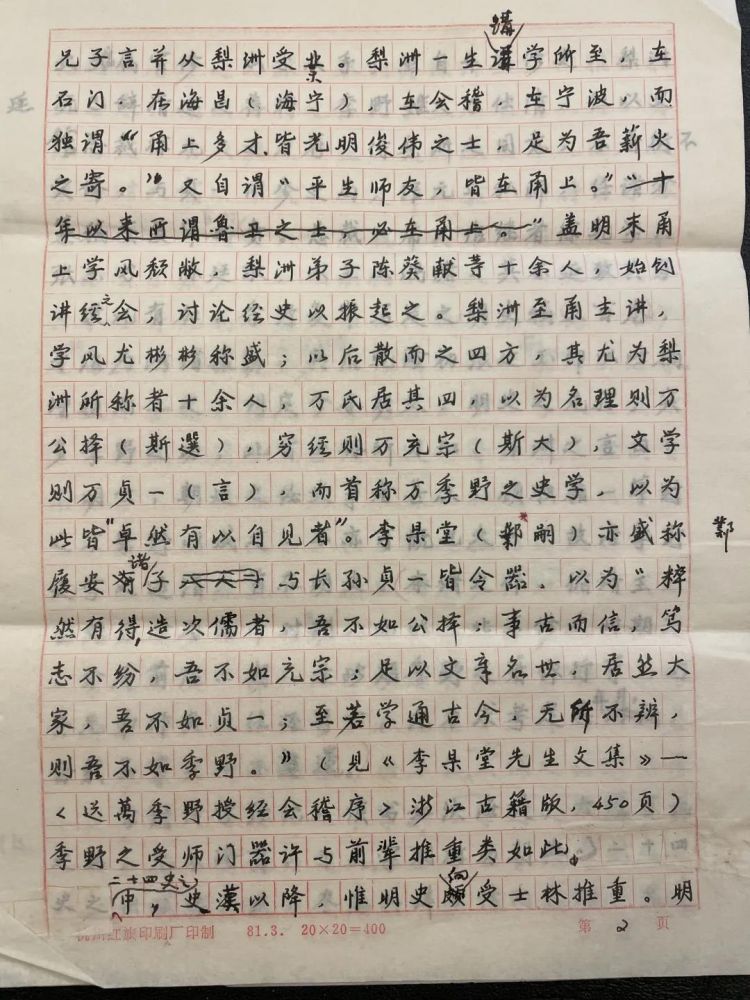 兄子言并从梨洲受业。梨洲一生讲学所至,在
石门、在海昌(海宁),在会稽,在宁波,而
独谓“甬上多才,皆光明俊伟之士,足为吾薪火
之寄。”又自谓“平生师友,皆在甬上。”“十
年以来所谓鲁卫之士,必在甬上。”盖明末甬
上学风颓敝,梨洲弟子陈葵献等十余人,始创
讲经之会,讨论经史以振起之。梨洲至甬主讲,
学风尤彬彬称盛;以后散而之四方,其尤为梨
洲所称者十余人,万氏居其四,以为名理则万
公择(斯選),穷经则万充宗(斯大),文学
则万贞一(言),而首称万季野之史学,以为
此皆“卓然有以自见者”。李杲堂(鄴嗣)亦盛称 鄴
履安诸子与长孙贞一皆令器,以为“粹
然有得,造次儒者,吾不如公择;事古而信,笃
志不纷,吾不如充宗;足以文章名世,居然大
家,吾不如贞一;至若学通古今,无所不辨,
则吾不如季野。”(见《李杲堂先生文集》—
〈送萬季野授经会稽序〉浙江古籍版,450页)
季野之受师门器许与前辈推重类如此。
二十四史之中,史漢以降,惟明史向受士林推重。明
杭州红旗印刷厂印制 81.3. 20×20=400 第 2 页